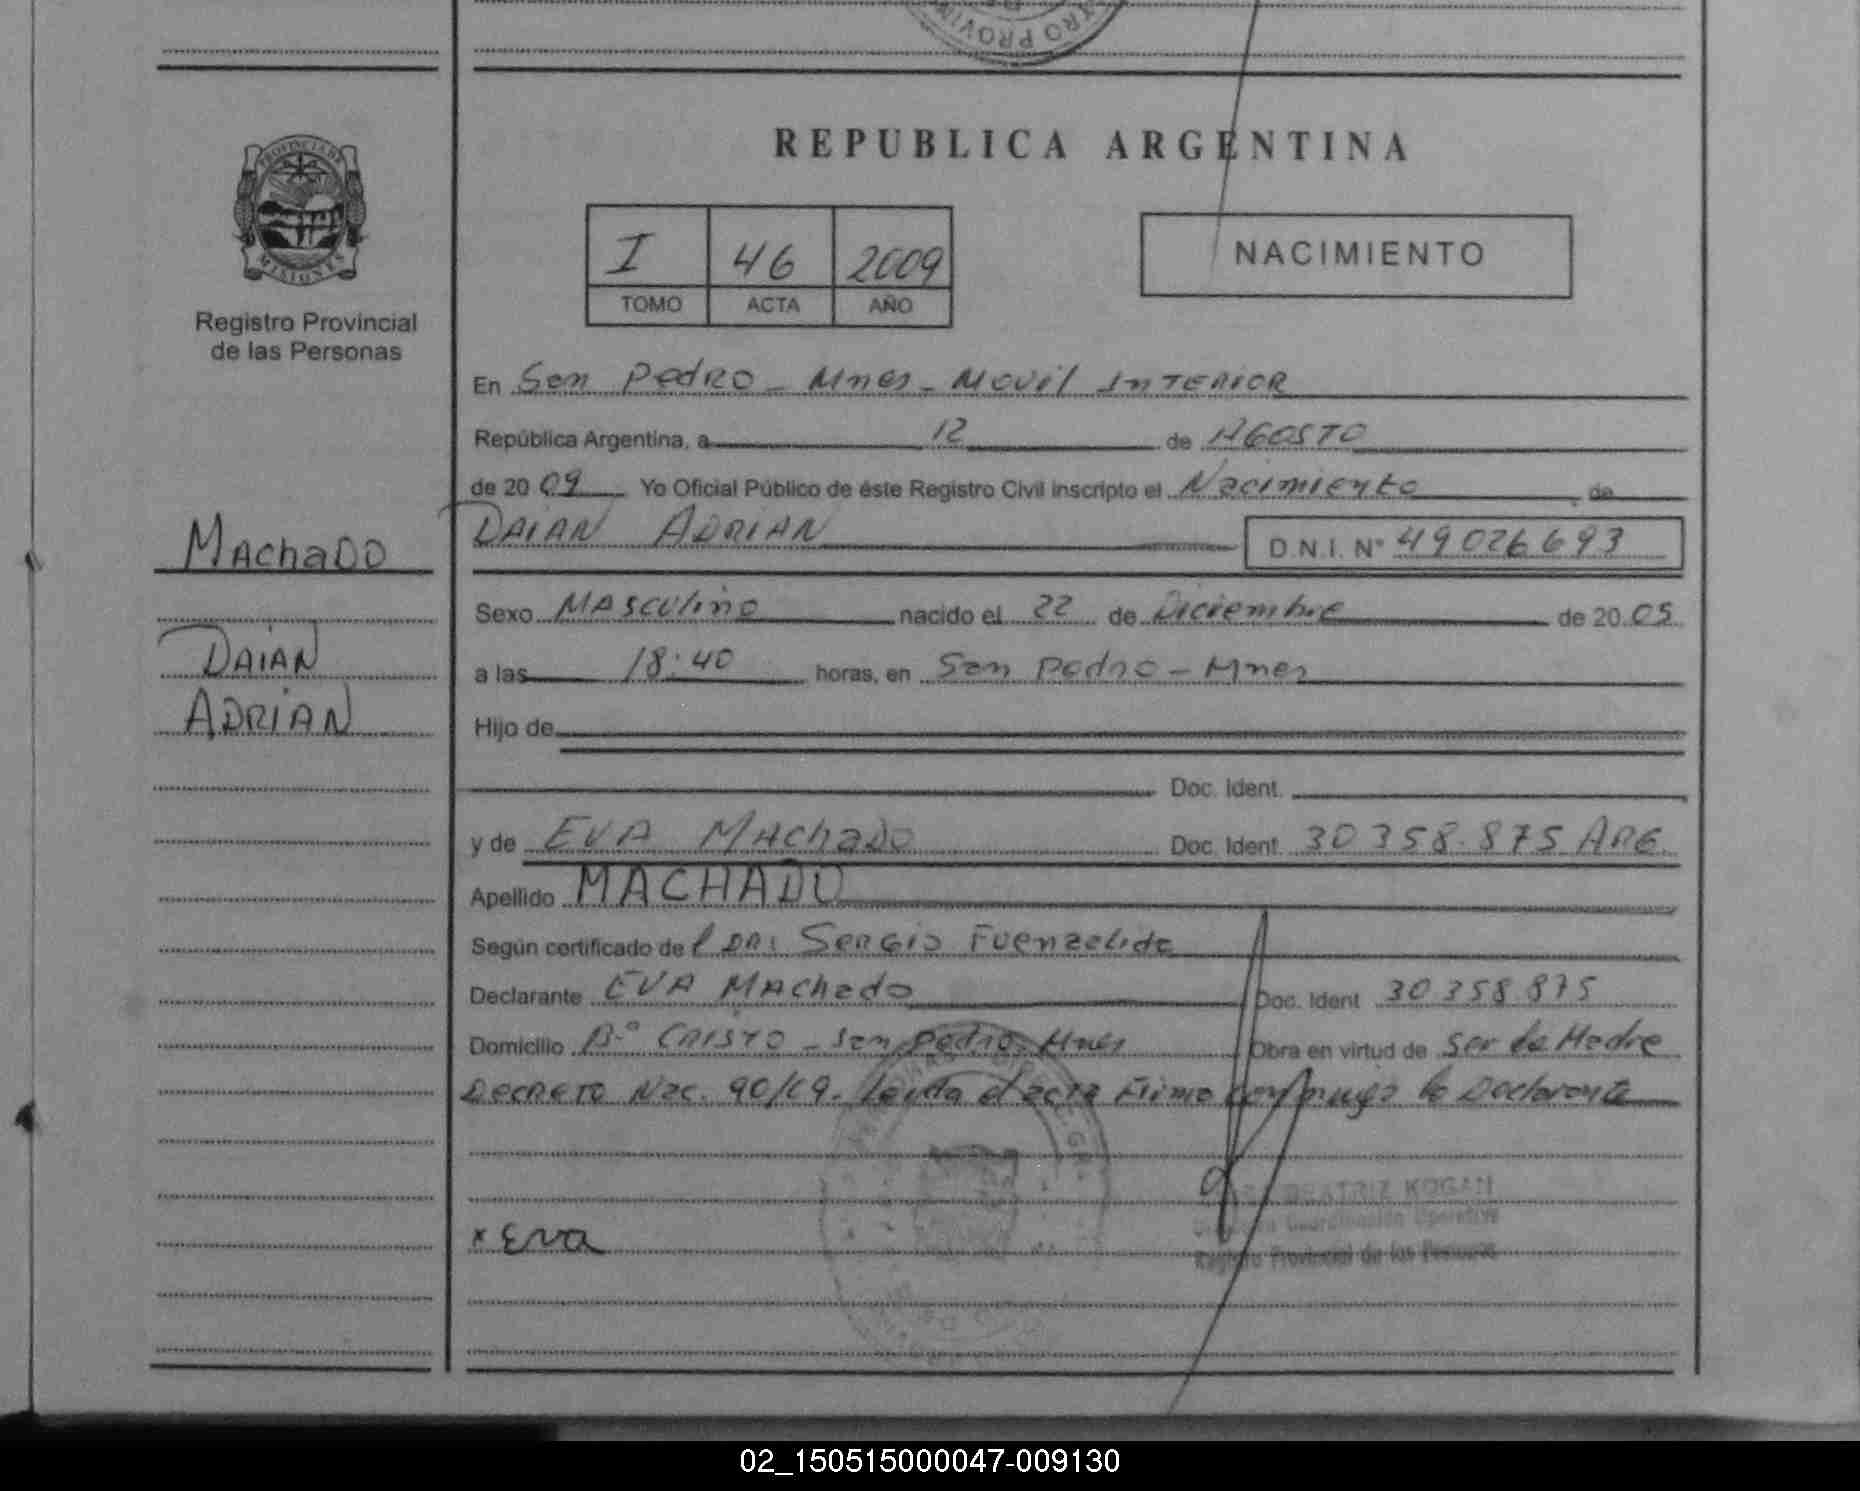 REPUBLICA ARGENTINA
PROVINCIA DE
MISIONES
Registro Provincial
de las Personas
I 46 2009
TOMO ACTA AÑO
NACIMIENTO
En San Pedro - Mnes - Movil INTERIOR
República Argentina, a 12 de AGOSTO
de 20 09 Yo Oficial Público de éste Registro Civil inscripto el Nacimiento de
DAIAN ADRIAN D.N.I. Nº 49026693
MAChaDO
DAIAN
ADRIAN
Sexo MASCulino nacido el 22 de Diciembre de 20 05
a las 18:40 horas, en San Pedro - Mnes
Hijo de
Doc. Ident.
y de EVA MAChaDO Doc. Ident. 30 358.875 ARG.
Apellido MACHADO
Según certificado del DR: SERGIO Fuenzalida
Declarante EVA MAChado Doc. Ident 30 358 875
Domicilio Bº CRISTO - San Pedro, Mnes Obra en virtud de Ser la Madre
DECRETO Nac. 90/09. Leida el acta Firma conmigo la Declarante
BEATRIZ KOGAN
Coordinación Operativa
Registro Provincial de las Personas
x Eva
02_150515000047-009130